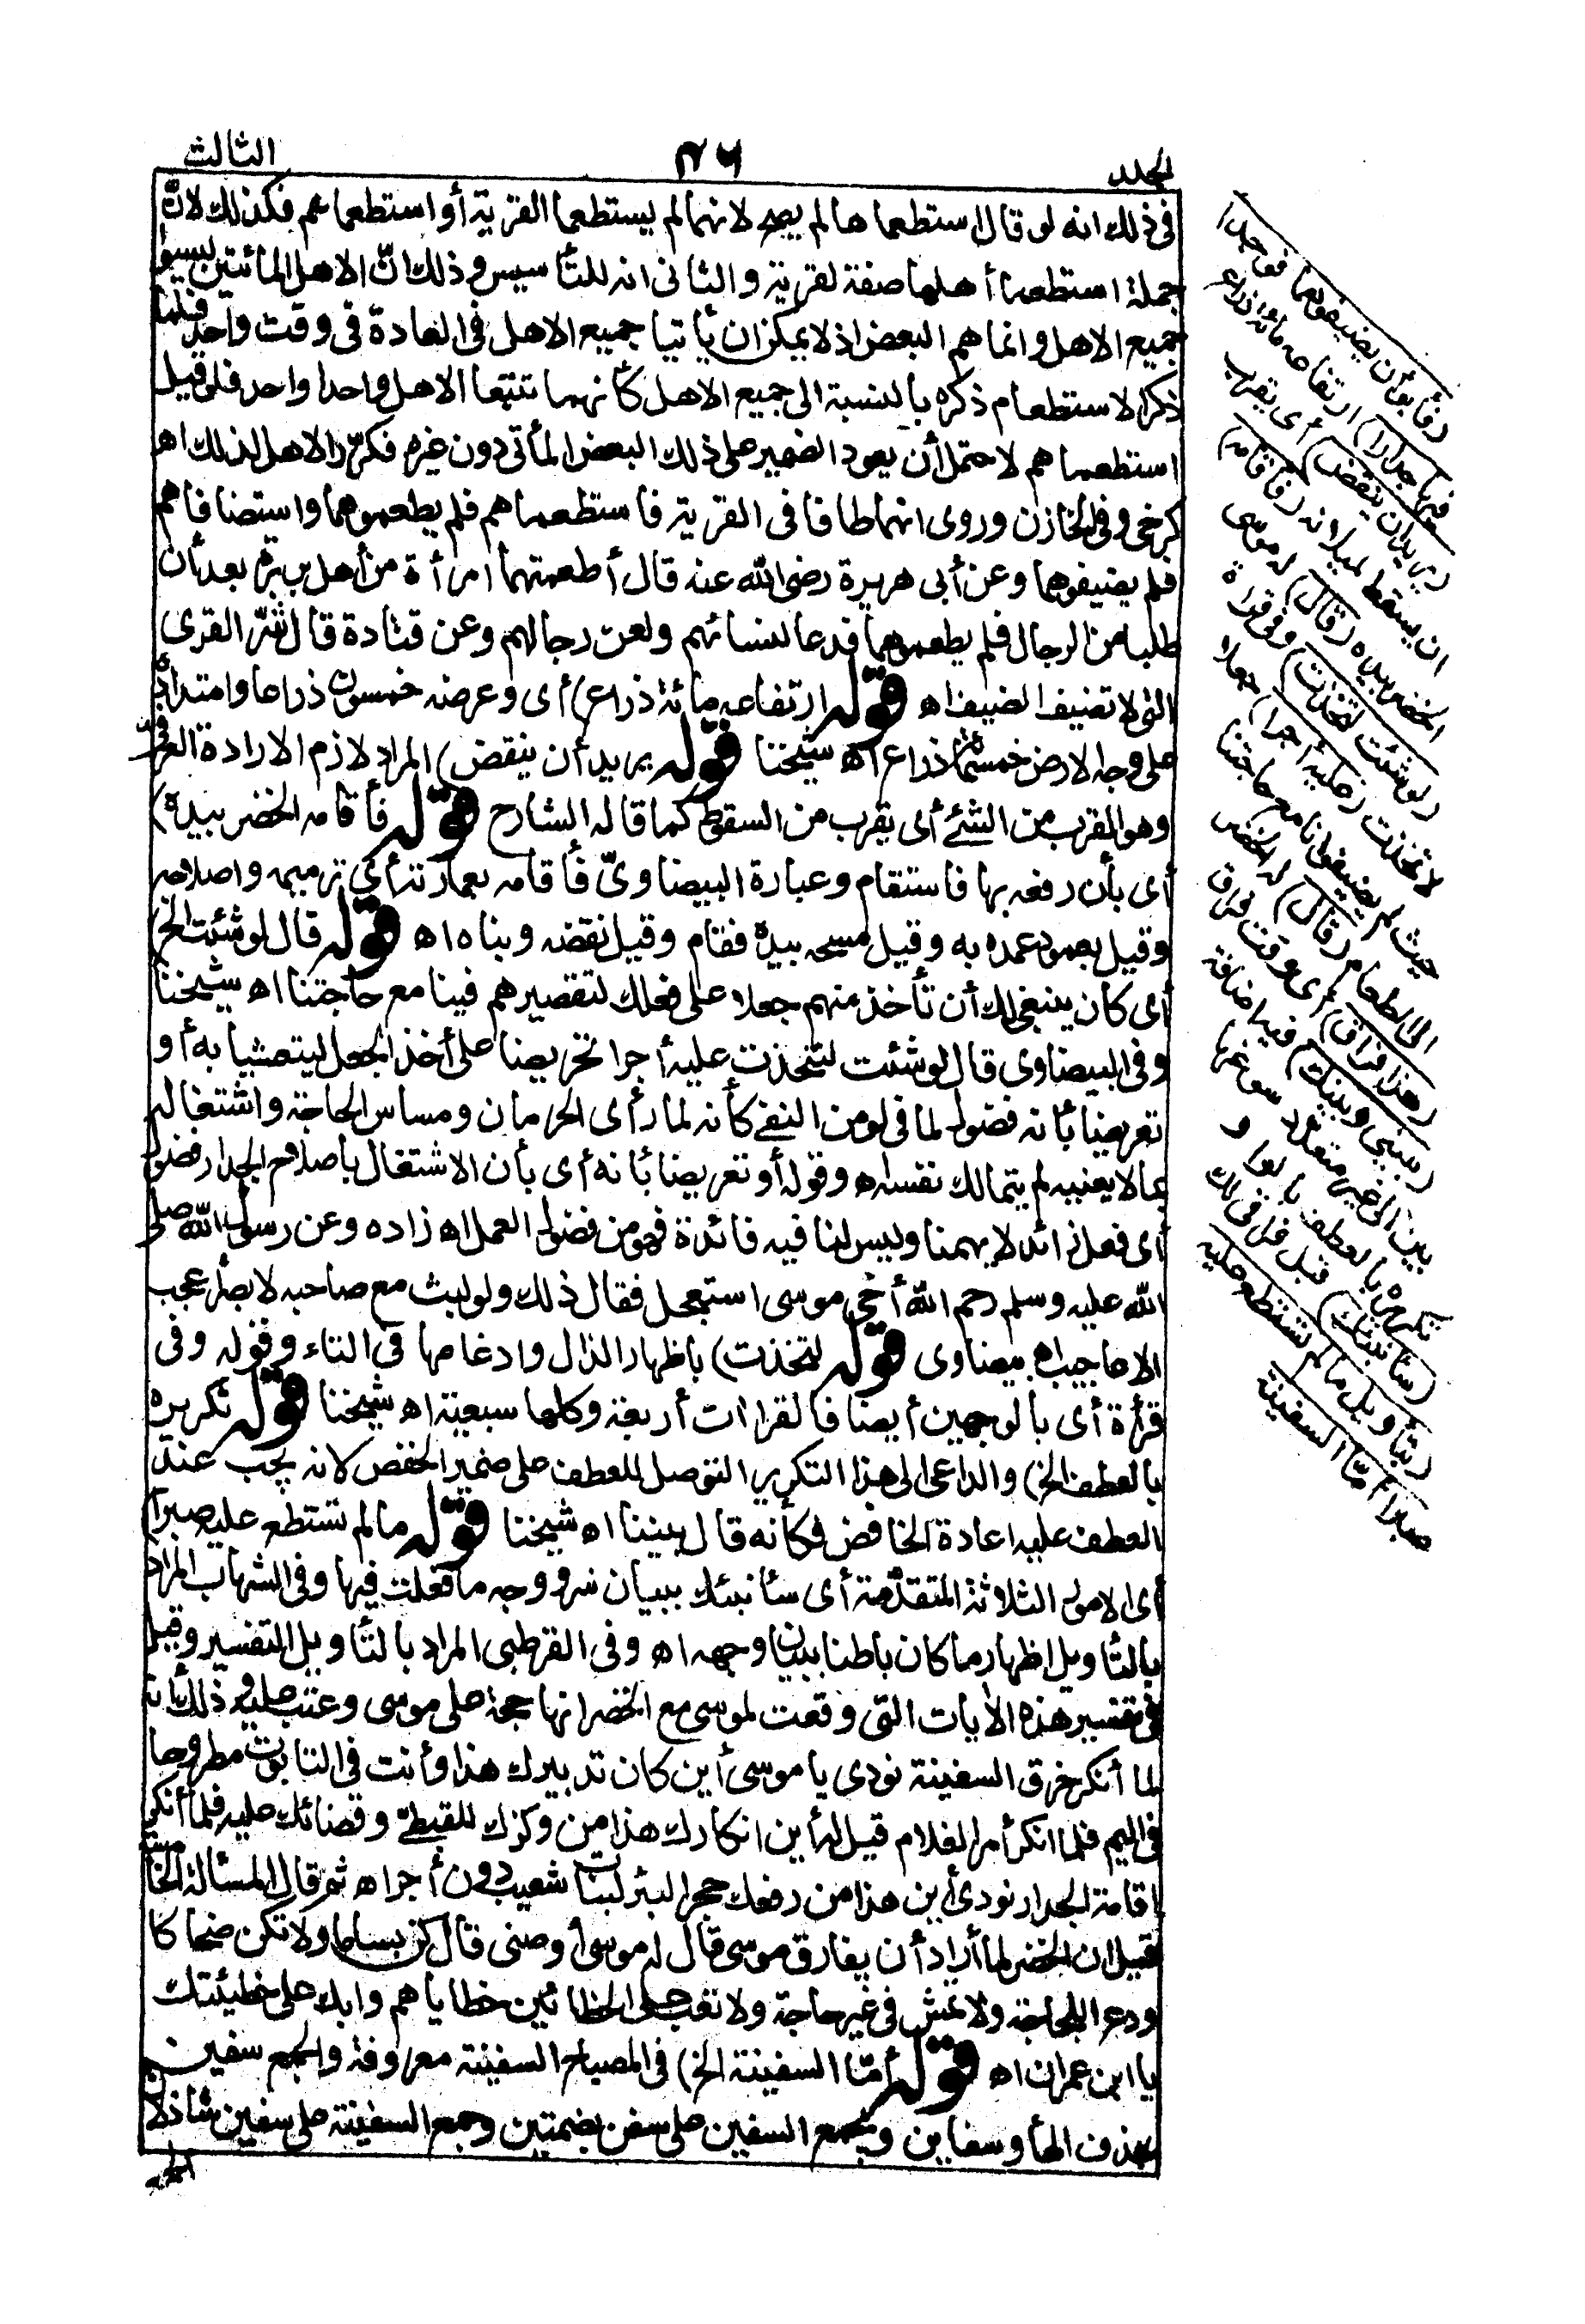 المجلد
٤٦
الثالث
فى ذلك انه لو قال استطعماها لم يصح لانهما لم يستطعما القرية أو استطعماهم فكذلك لانّ
جملة استطعما أهلها صفة لقرية والثانى انه للتأسيس وذلك انّ الاهل المأتيين ليسوا
جميع الاهل وانما هم البعض اذ لا يمكن ان يأتيا جميع الاهل فى العادة فى وقت واحد فلما
ذكر الاستطعام ذكره بالنسبة الى جميع الاهل كأنهما تتبعا الاهل واحدا واحد فلو قيل
استطعماهم لاحتمل أن يعود الضمير على ذلك البعض المأتى دون غيره فكرّر الاهل لذلك اه
كرخى وفى الخازن وروى انهما طافا فى القرية فاستطعماهم فلم يطعموهما واستضافاهم
فلم يضيفوهما وعن أبى هريرة رضى الله عنه قال أطعمتهما امرأة من أهل بربرة بعد أن
طلبا من الرجال فلم يطعموهما فدعا لنسائهم ولعن رجالهم وعن قتادة قال شرّ القرى
التى لا تضيف الضيف اه قوله ارتفاعه مائة ذراع) أى وعرضه خمسون ذراعا وامتداده
على وجه الارض خمسمائة ذراع اه شيخنا قوله يريد أن ينقض) المراد لازم الارادة العرفى
وهو القرب من الشئ أى يقرب من السقوط كما قاله الشارح قوله فأقامه الخضر بيده)
أى بأن رفعه بها فاستقام وعبارة البيضاوىّ فأقامه بعمارته أى ترميمه واصلاحه
وقيل بعمود عمده به وقيل مسحه بيده فقام وقيل نقضه وبناه اه قوله قال لو شئت الخ)
أى كان ينبغى لك أن تأخذ منهم جعلا على فعلك لتقصيرهم فينا مع حاجتنا اه شيخنا
وفى البيضاوى قال لو شئت لتخذت عليه أجرا تحريضا على أخذ الجعل ليتعشيا به أو
تعريضا بأنه فضول لما فى لو من النفى كأنه لما رأى الحرمان ومساس الحاجة واشتغاله
بما لا يعنيه لم يتمالك نفسه اه وقوله أو تعريضا بأنه أى بأن الاشتغال باصلاح الجدار فضول
أى فعل زائد لا يهمنا وليس لنا فيه فائدة فهو من فضول العمل اه زاده وعن رسول الله صلى
الله عليه وسلم رحم الله أخى موسى استعجل فقال ذلك ولو لبث مع صاحبه لابصر أعجب
الاعاجيب اه بيضاوى قوله لتخذت) باظهار الذال وادغامها فى التاء وقوله وفى
قرأة أى بالوجهين أيضا فالقراات أربعة وكلها سبعية اه شيخنا قوله تكريره
بالعطف الخ) والداعى الى هذا التكرير التوصل للعطف على ضمير الخفض لانه يجب عند
العطف عليه اعادة الخافض فكأنه قال بيننا اه شيخنا قوله ما لم تستطع عليه صبرا)
أى الامور الثلاثة المتقدّمة أى سأنبئك ببيان سر ووجه ما فعلت فيها وفى الشهاب المراد
بالتأويل اظهار ما كان باطنا ببيان وجهه اه وفى القرطبى المراد بالتأويل التفسير وقيل
فى تفسير هذه الأيات التى وقعت لموسى مع الخضر انها حجة على موسى وعتب عليه وذلك أنه
لما أنكر خرق السفينة نودى يا موسى أين كان تدبيرك هذا وأنت فى التابوت مطروحا
فى اليم فلما انكر أمر الغلام قيل له أين انكارك هذا من وكزك للقبطىّ وقضائك عليه فلما أنكر
اقامة الجدار نودى أين هذا من رفعك حجر البئر لبنات شعيب دون أجر اه ثم قال المسألة الخامسة
قيل ان الخضر لما أراد أن يفارق موسى قال له موسى أوصنى قال كن بساما ولا تكن ضحاكا
ودع اللجاجة ولا تمش فى غير حاجة ولا تعب على الخطائين خطاياهم وابك على خطيئتك
يا ابن عمران اه قوله أمّا السفينة الخ) فى المصباح السفينة معروفة والجمع سفين
بحذف الهأ وسفاين ويجمع السفين على سفن بضمتين وجمع السفينة على سفين شاذ لانّ
الجمع
(فأبوا أن يضيفوهما فوجدا
فيها جدارا) ارتفاعه مائة ذراع
(يريد أن ينقض) أى يقرب
ان يسقط لميلانه (فأقامه)
الخضر بيده (قال) له موسى
(لو شئت لتخذت) وفى قراءة
لاتخذت (عليه أجرا) جعلا
حيث لم يضيفونا مع حاجتنا
الى الطعام (قال) له الخضر
(هذا فراق) أى وقت فراق
(بينى وبينك) فيه اضافة
بين الى غير متعدد سوغها
تكريره بالعطف بالواو
(سأنبئك) قبل فراقى لك
(بتأويل ما لم تستطع عليه
صبرا أمّا السفينة